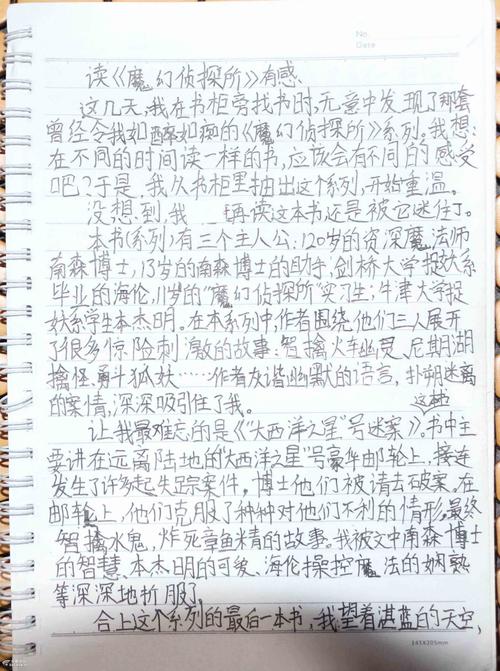 No.
Date
读《魔幻侦探所》有感
这几天,我在书柜旁找书时,无意中发现了那套
曾经令我如醉如痴的《魔幻侦探所》系列。我想:
在不同的时间读一样的书,应该会有不同的感受
吧?于是,我从书柜里抽出这个系列,开始重温。
没想到,我 再读这本书还是被它迷住了。
本书(系列)有三个主人公:120岁的资深魔法师
南森博士,13岁的南森博士的助手;剑桥大学捉妖系
毕业的海伦,11岁的“魔幻侦探所”实习生;牛津大学捉
妖系学生本杰明。在本系列中,作者围绕他们三人展开
了很多惊险刺激的故事:智擒火车幽灵、尼斯湖
擒怪、勇斗狐妖……作者诙谐幽默的语言,扑朔迷离
的案情,深深吸引住了我。
让我最难忘的是《“大西洋之星”号迷案》。这本书中主
要讲在远离陆地的“大西洋之星”号豪华邮轮上,接连
发生了许多起失踪案件,博士他们被请去破案。在
邮轮上,他们克服了种种对他们不利的情形,最终
智擒水鬼,炸死章鱼精的故事。我被文中南森博士
的智慧、本杰明的可爱、海伦操控魔法的娴熟
等深深地折服了。
合上这个系列的最后一本书,我望着湛蓝的天空,
145X205mm